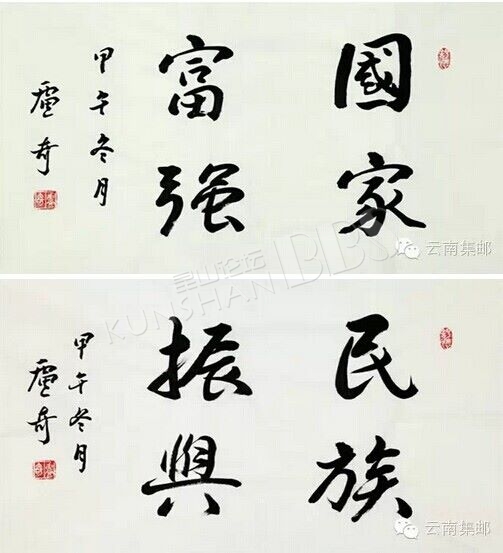 國家
富强
甲午冬月
盧奇
云南集邮
昆山论坛
KUNSHAN BBS
民族
振興
甲午冬月
盧奇
云南集邮